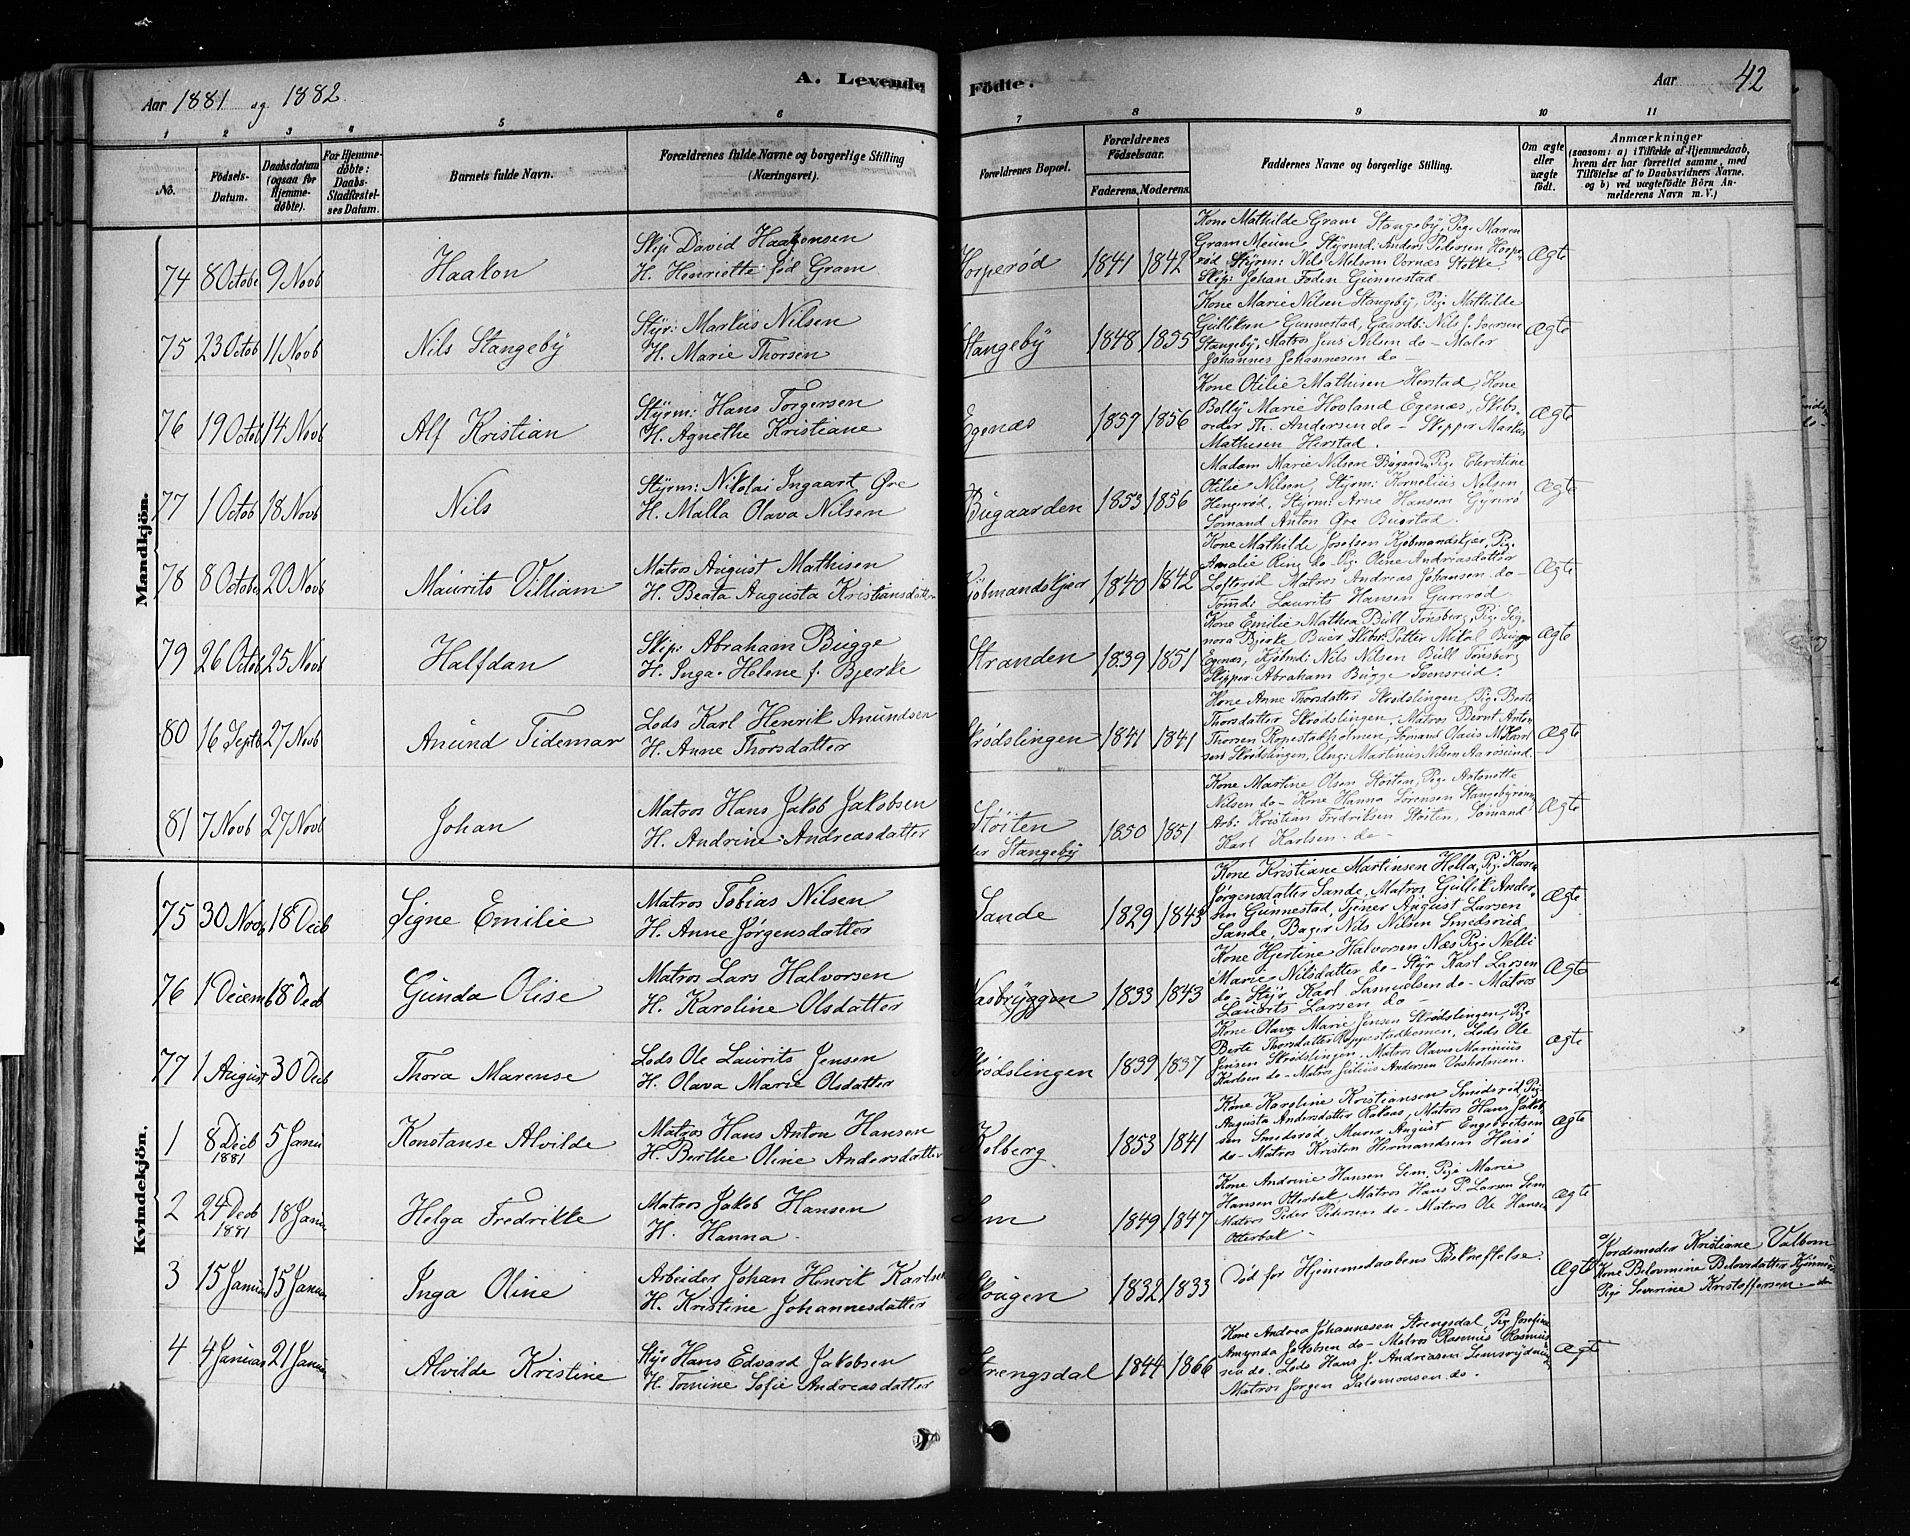 Aar 1881 og 1882.
A. Levende Födte.
Aar
42
1 2 3 4 5 6 7 8 9 10 11
No.
Födsels-Datum.
Daabsdatum (ogsaa for Hjemme-döbte).
For Hjemme-döbte: Daabs-Stadfæstel-ses Datum.
Barnets fulde Navn.
Forældrenes fulde Navne og borgerlige Stilling (Næringsvei).
Forældrenes Bopæl.
Forældrenes Födselsaar.
Faderens. Moderens.
Faddernes Navne og borgerlige Stilling.
Om ægte eller uægte födt.
Anmærkninger
(saasom: a) i Tilfælde af Hjemmedaab,
hvem der har forrettet samme, med
Tilföielse af to Daabsvidners Navne,
og b) ved uægtefödte Börn An-
melderens Navn m. V.)
Mandkjön.
74 8 Octobe 9 Novb Haakon
Skip David Haakonsen
H. Henriette fød Gram
Horperød 1841 1842
Kone Mathilde Gram Stangeby, Pige Maren
Gram Meum, Styrmd: Anders Pedersen Horpe-
rød Styrm: Nils Melsom Vernæs Stokke.
Skip: Johan Foden Gunnestad
Ægte
75 23 Octob 11 Novb Nils Stangeby
Styr: Markus Nilsen
H. Marie Thorsen
Stangeby 1848 1855
Kone Marie Nilsen Stangeby, Pige Mathilde
Gulliksen Gunnestad, Gaardb: Nils J. Iversen
Stangeby, Matros Jens Nilsen do – Maler
Johannes Johannesen do –
Ægte
76 19 Octob 14 Novb Alf Kristian
Styrm: Hans Torgersen
H. Agnethe Kristiane
Egenæs 1857 1856
Kone Otilie Mathisen Herstad, Kone
Bolly Marie Hovland Egenæs, Skibs-
reder Th. Andersen do – Skipper Markus
Mathisen Herstad.
Ægte
77 1 Octob 18 Novb Nils
Styrm: Nikolai Ingaart Øre
H. Malla Olava Nilsen
Bugaarden 1853 1856
Madam Marie Nilsen Bugaarden, Pige Christine
Otilie Nilsen, Styrm: Kornelius Nelsen
Hengsrød, Styrm: Arne Hansen
Sømand Anton Øre Buerstad.
Ægte
78 8 October 20 Novb Maurits Villiam
Matros August Mathisen
H. Beata Augusta Kristiansdatter
Kjøbmandskjær 1840 1842
Kone Mathilde Josefsen Kjøbmandskjær, Pige
Amalie Ring do – Pig. Oline Andriasdatter
Lofterød Matros Andreas Johansen do –
Tømdr. Laurits Hansen
Ægte
79 26 Octob 25 Novb Halfdan
Skip: Abraham Bugge
H. Inga Helene f. Bjerke
Stranden 1839 1851
Kone Emilie Mathea Bull Tønsberg, Pige Sig-
nora Bjerke Buer Skibr. Petter Mekal Bugge
Egenæs, Kjøbmd: Nils Nilsen Bull Tønsberg
Skipper Abraham Bugge Svensrud.
Ægte
80 16 Septb 27 Novb Anund Tidemar
Lods Karl Henrik Anundsen
H. Anne Thorsdatter
Skrødslingen 1841 1841
Kone Anne Thorsdatter Skrødslingen, Pige Berte
Thorsdatter Skrødslingen, Matros Bernt Anton
Thorsen Ropestadholmen, Sømand Olaus M. Karl-
sen Skrødslingen, Ung: Martinius Nilsen Aarøsund.
Ægte
81 7 Novb 27 Novb Johan
Matros Hans Jakob Jakobsen
H. Andrine Andreasdatter
Støiten
der Stangeby 1850 1851
Kone Martine Olsen Støiten, Pige Antonette
Nilsen do – Kone Hanna Sørensen
Arb: Kristian Fredriksen Støiten, Sømand
Karl Karlsen do –
Ægte
Kvindekjön.
75 30 Novb 18 Decb Signe Emilie
Matros Tobias Nilsen
H. Anne Jørgensdatter
Sande 1829 1843
Kone Kristiane Martinsen Hella, Pig. Karen
Jørgensdatter Sande, Matros Gullik Ander-
sen Gunnestad, Tjener August Larsen
Sande, Bager Nils Nilsen Smedsrud
Ægte
76 1 Decemb 18 Decb Gunda Olise
Matros Lars Halvorsen
H. Karoline Olsdatter
Næsbryggen 1833 1843
Kone Hjertine Halvorsen Næs Pige Nelli
Marie Nilsdatter do – Styr Karl Larsen
do – Styr Karl Samuelsen do – Matros
Laurits Larsen do –
Ægte
77 1 August 30 Decb Thora Marense
Lods Ole Laurits Jensen
H. Olava Marie Olsdatter
Skrødslingen 1839 1837
Kone Olava Marie Jensen Skrødslingen, Pige
Berte Thorsdatter, Lods Ole
Jensen Skrødslingen, Matros Olaves Marinius
Karlsen do – Matros Julius Andersen Vasholmen.
Ægte
1 8 Decb 1881 5 Janu Konstanse Alvilde
Matros Hans Anton Hansen
H. Berthe Oline Andersdatter
Kolberg 1853 1841
Kone Karoline Kristiansen Smidsrød, Pig.
Augusta Andersdatter Rakaas, Matros Hans Jakob-
sen Smedsrød, Murer August Engebretsen
do – Matros Kristen Hermandsen Husø
Ægte
2 24 Decb 1881 18 Janu Helga Fredrikke
Matros Jakob Hansen
H. Hanna –
Sem 1849 1847
Kone Andrine Hansen Sem, Pige Marie
Hansen Otterbæk, Matros Hans P. Larsen Sem
Matros Peder Pedersen do – Matros Ole Hansen
Otterbæk –
Ægte
3 15 Janua 15 Janua Inga Oline
Arbeider Johan Henrik Karlsen
H. Kristine Johannesdatter
Skougen 1832 1833
Død før Hjemmedaabens Bekræftelse.
Ægte
a/ Jordemoder Kristiane Valbom
Kone Belovmine Belovsdatter
Pige Severine Kristoffersen – do
4 4 Januar 21 Janua Alvilde Kristine
Styr Hans Edvard Jakobsen
H. Tomine Sofie Andreasdatter
Strengsdal 1844 1866
Kone Andrea Johannesen Strengsdal, Pige Josefine
Amynda Jakobsen do – Matros Rasmus Rasmus-
sen do. Lods Hans J. Andreasen
Matros Jørgen Salomonsen do.
Ægte